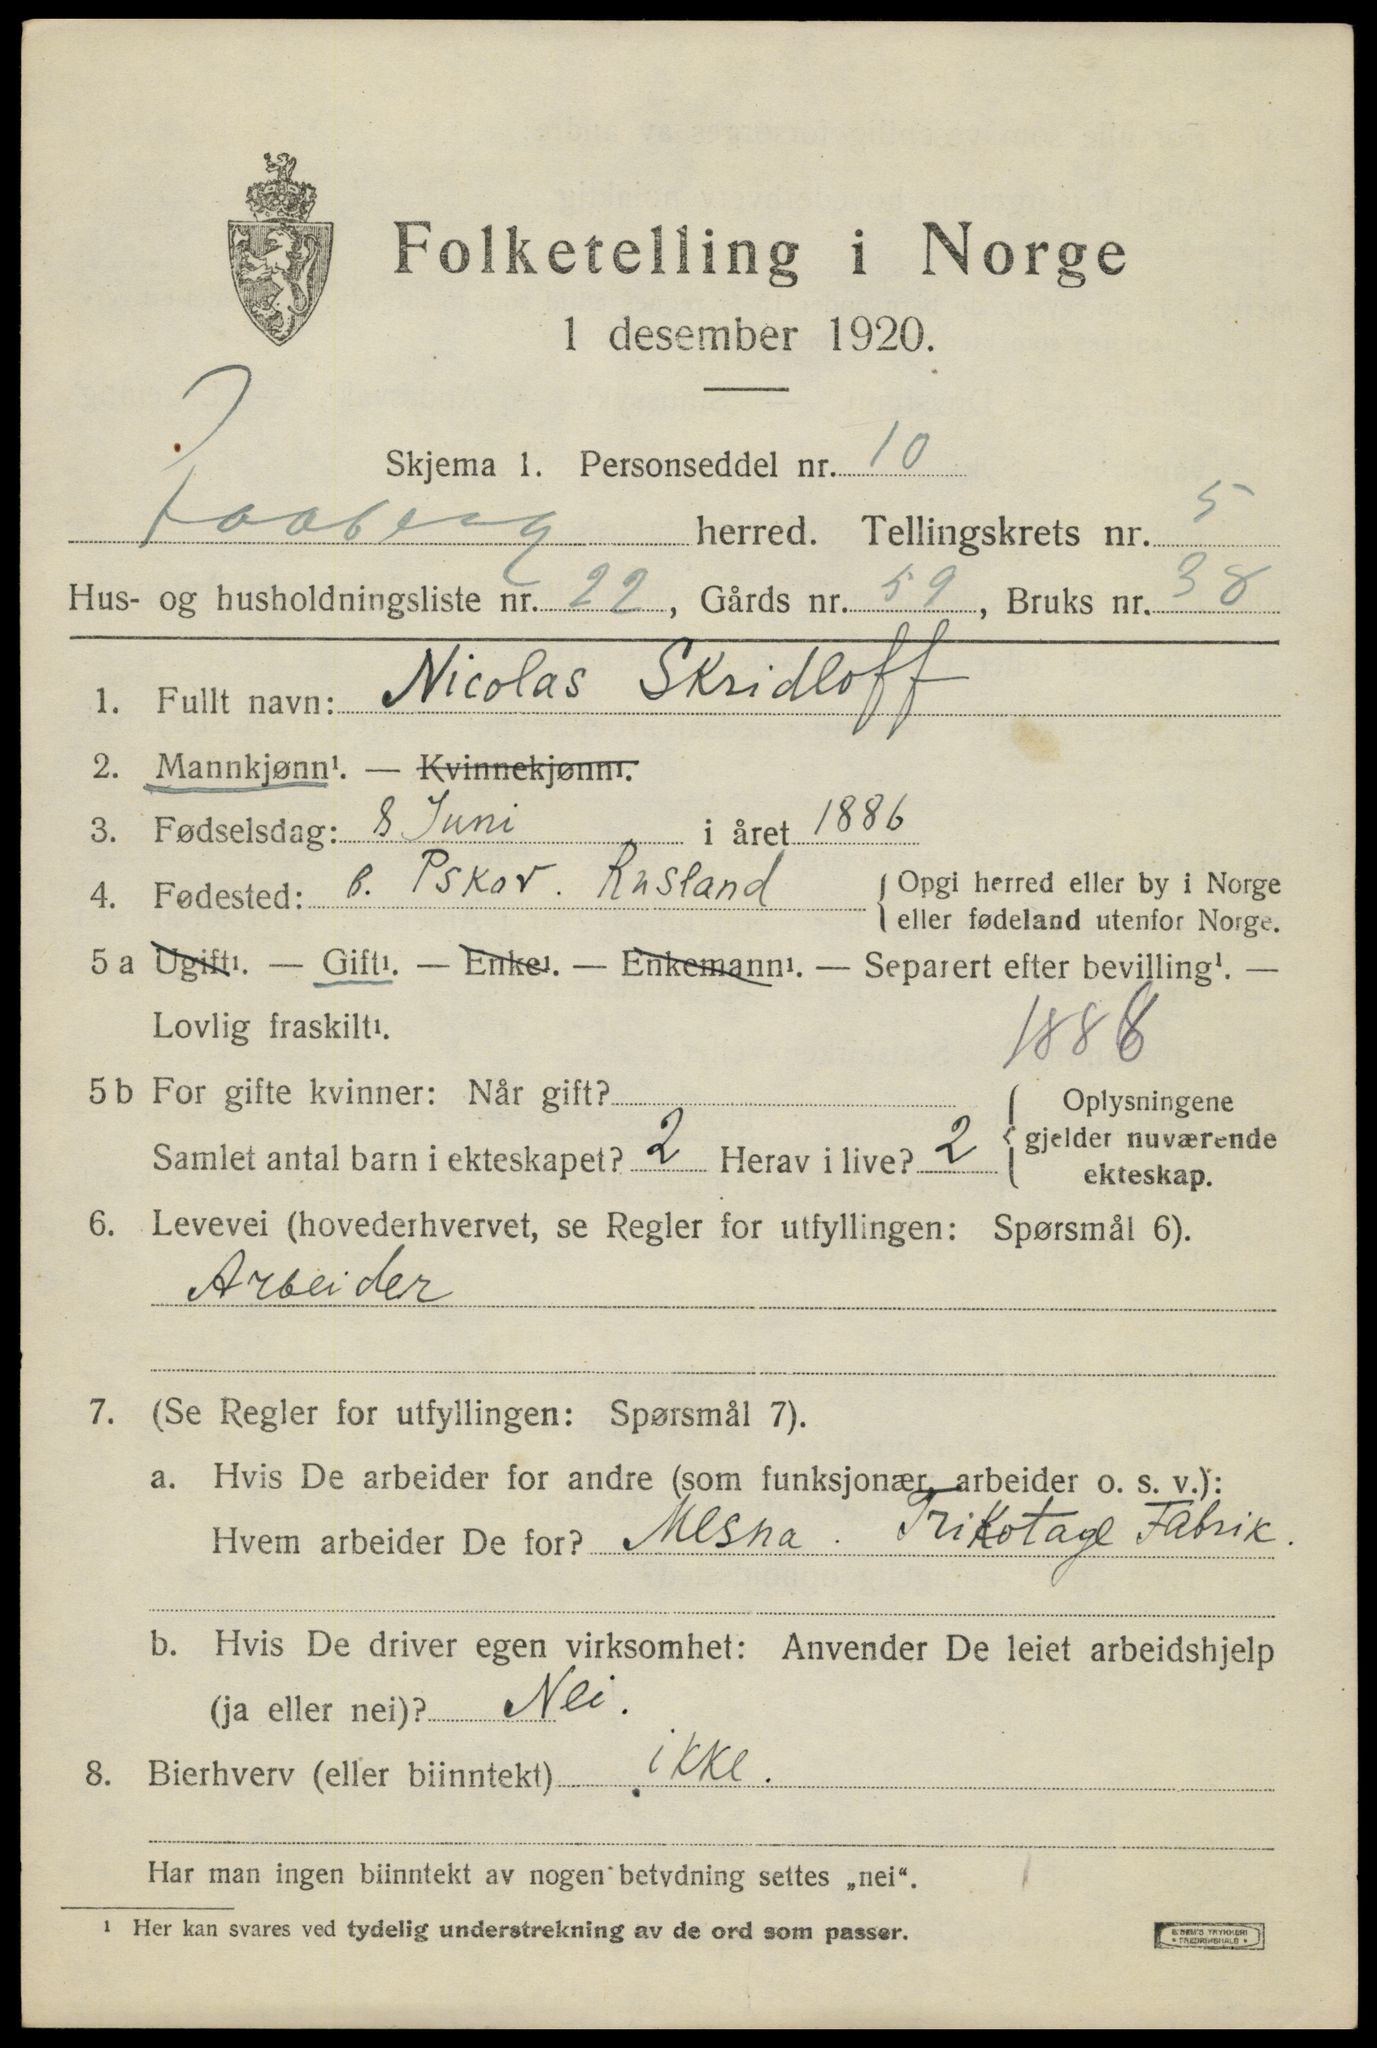 Folketelling i Norge
1 desember 1920.
Skjema 1. Personseddel nr. 10
Faaberg herred. Tellingskrets nr. 5
Hus- og husholdningsliste nr. 22, Gårds nr. 59, Bruks nr. 38
1. Fullt navn: Nicolas Skridloff
2. Mannkjønn¹. — Kvinnekjønn¹.
3. Fødselsdag: 8 Juni i året 1886
4. Fødested: b. Pskov. Rusland {Opgi herred eller by i Norge
eller fødeland utenfor Norge.
5 a Ugift¹. — Gift¹. — Enke¹. — Enkemann¹. — Separert efter bevilling¹. —
Lovlig fraskilt¹.
1886
5 b For gifte kvinner: Når gift?
Samlet antal barn i ekteskapet? 2 Herav i live? 2
{Oplysningene
gjelder nuværende
ekteskap.
6. Levevei (hovederhvervet, se Regler for utfyllingen: Spørsmål 6).
Arbeider
7. (Se Regler for utfyllingen: Spørsmål 7).
a. Hvis De arbeider for andre (som funksjonær, arbeider o. s. v.):
Hvem arbeider De for? Mesna. Trikotage Fabrik.
b. Hvis De driver egen virksomhet: Anvender De leiet arbeidshjelp
(ja eller nei)? Nei.
8. Bierhverv (eller biinntekt) ikke.
Har man ingen biinntekt av nogen betydning settes „nei“.
¹ Her kan svares ved tydelig understrekning av de ord som passer.